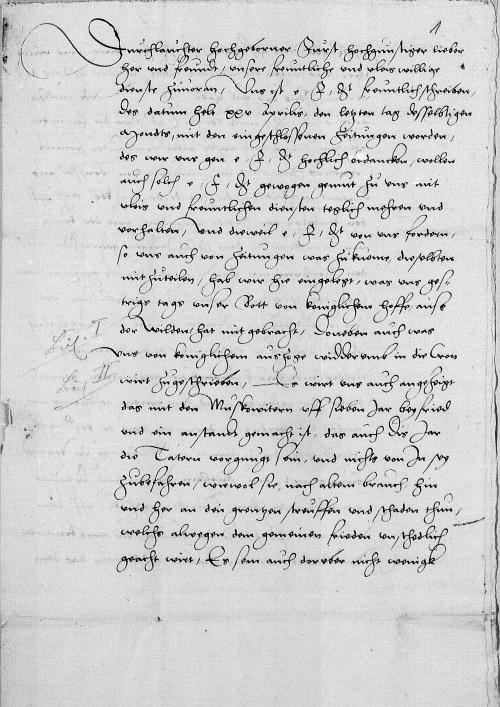 1
Durchlauchter hochgeborner Furst, hochgunstiger lieber
her und freundt, unsere freuntliche und vleis willige
dienste zuuoran, Uns ist e, F, Dt freuntlich schreiben,
des datum helt xxv aprilis, den letzten tag desselbigen
Monats, mit den eingeschlossenen Zeitungen worden,
des wir uns gen e, F, Dt hochlich bedancken, wollen
auch solch e, F, Dt gewogen gemut zu uns mit
vleis und freuntlichen diensten teglich mehren und
vorhalten, Und dieweil e, F, Dt von uns fordern,
so uns auch von Zeitungen was zukume, dieselbten
mit zuteilen, hab wir hie eingelegt, was uns ges-
trigs tags unser Bott von koniglichem hoffe auss
der Wilden, hat mit gebracht, Doneben auch was
I
uns von koniglichem auszoge widderumb in die Cron
II
wirt zugeschrieben, Es wirt uns auch angezeigt
das mit den Muskowitern uff sieben Jar beyfried
und ein anstandt gemacht ist, das auch dis Jar
die Tatern vorgnugt sein, und nichts von In sey
zubefahren, wiewol sie, nach altem brauch hin
und her an den grentzen streuffen und schaden thun,
welchs alwegen dem gemeinen frieden unschedlich
geacht wirt, Es sein auch doruber nicht wenigk